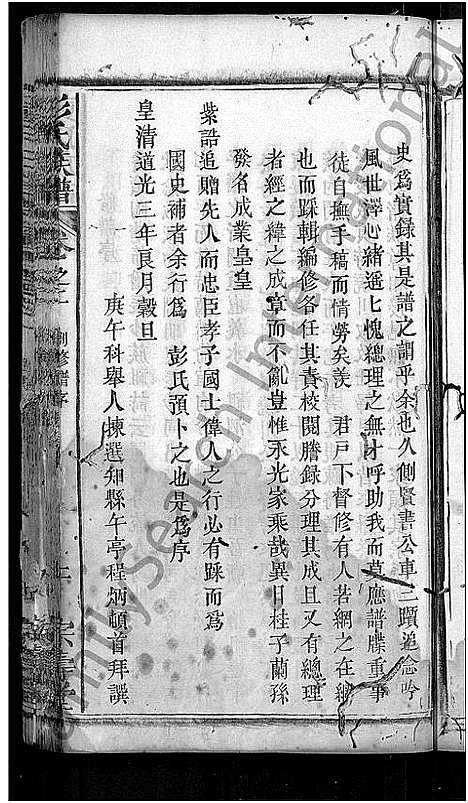 史爲實錄其是譜之謂乎余也久側賢書公車三躓追念吟
風世澤心緒遥七愧總理之無才呼助我而莫應譜牒重事
徒自撫手稿而情勞矣羡　君戸下督修有人若網之在綱
也而踩輯編修各任其責校閱謄録分理其成且又有總理
者經之緯之成章而不亂豈惟永光家乘哉異日桂子蘭孫
發名成業皇皇
紫誥追贈先人而忠臣孝子國士偉人之行必有踩而爲
國史補者余行爲　彭氏預卜之也是爲序
皇清道光三年艮月穀旦
庚午科舉人揀選知縣午亭程炳頓首拜譔
彭氏族譜
卷之
創修譜序
上
FamilySeason International